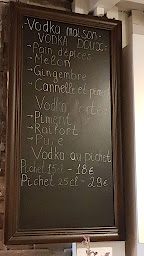 Vodka maison
VODKA DOUCE
Pain d'épices
- Melon
- Gingembre
- Cannelle et pim
Vodka forte
- Piment
- Raifort
Vodka au pichet
Pichet 15cl - 18€
Pichet 25cl - 29€